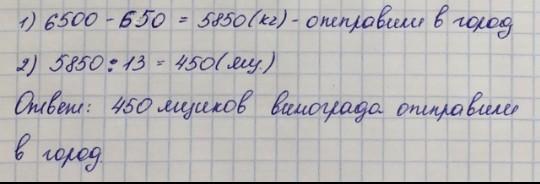 1) 6500 - 650 = 5850 (кг) - отправили в город
2) 5850 : 13 = 450 (ящ.)
Ответ: 450 ящиков винограда отправили
в город.